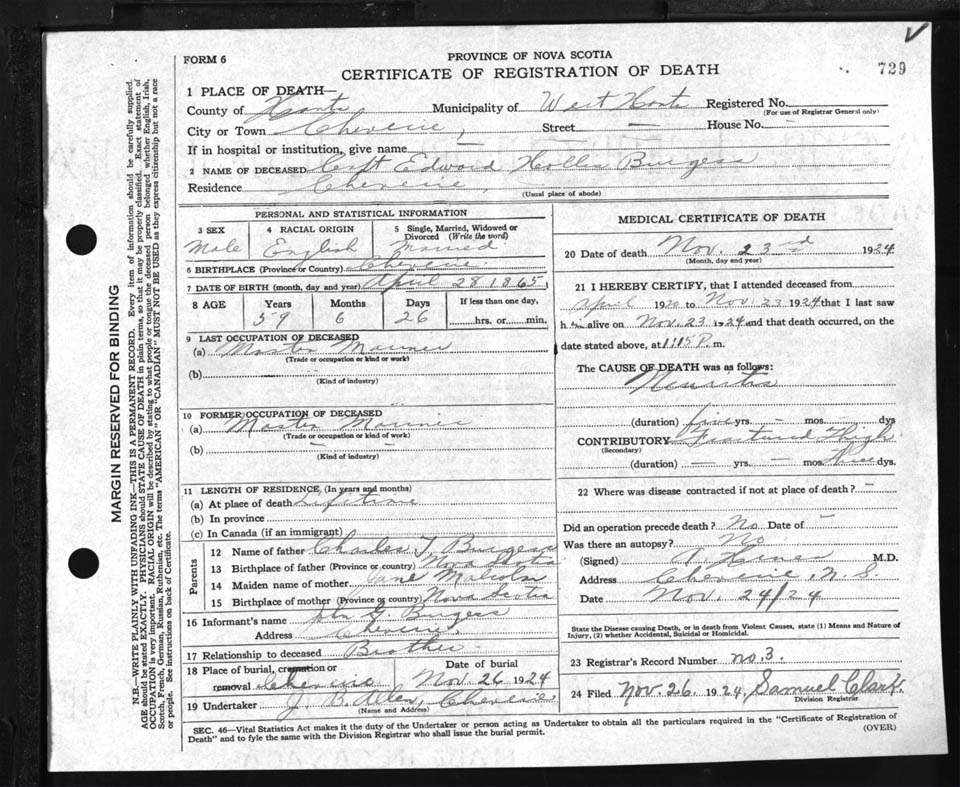 FORM 6
PROVINCE OF NOVA SCOTIA
CERTIFICATE OF REGISTRATION OF DEATH
729
1 PLACE OF DEATH—
County of Hants Municipality of West Hants Registered No.
(For use of Registrar General only)
City or Town Cheverie, Street — House No. —
If in hospital or institution, give name —
2 NAME OF DECEASED Capt Edward Hollis Burgess
Residence Cheverie,
(Usual place of abode)
PERSONAL AND STATISTICAL INFORMATION
3 SEX 4 RACIAL ORIGIN 5 Single, Married, Widowed or Divorced (Write the word)
Male English Married
6 BIRTHPLACE (Province or Country) Cheverie
7 DATE OF BIRTH (month, day and year) April 28 1865
8 AGE Years Months Days If less than one day,
59 6 26 hrs. or min.
9 LAST OCCUPATION OF DECEASED
(a) Master Mariner
(Trade or occupation or kind of work)
(b)
(Kind of industry)
10 FORMER OCCUPATION OF DECEASED
(a) Master Mariner
(Trade or occupation or kind of work)
(b) —
(Kind of industry)
11 LENGTH OF RESIDENCE (In years and months)
(a) At place of death Lifetime
(b) In province
(c) In Canada (if an immigrant)
Parents
12 Name of father Charles T. Burgess
13 Birthplace of father (Province or country) Nova Scotia
14 Maiden name of mother Jane Malcolm
15 Birthplace of mother (Province or country) Nova Scotia
16 Informant's name John G. Burgess
Address Cheverie,
17 Relationship to deceased Brother
18 Place of burial, cremation or removal Cheverie
Date of burial Nov. 26 1924
19 Undertaker J. B. Allen, Cheverie
(Name and Address)
MEDICAL CERTIFICATE OF DEATH
20 Date of death Nov. 23rd 1924
(Month, day and year)
21 I HEREBY CERTIFY, that I attended deceased from
April 1920 to Nov. 23 1924 that I last saw
him alive on Nov. 23 1924 and that death occurred, on the
date stated above, at 1:15 P. m.
The CAUSE OF DEATH was as follows:
Neuritis
(duration) five yrs. — mos. dys
CONTRIBUTORY Fractured Thigh
(Secondary)
(duration) — yrs. — mos. Three dys.
22 Where was disease contracted if not at place of death? —
Did an operation precede death? No Date of —
Was there an autopsy? No
(Signed) M.D.
Address Cheverie, N.S.
Date Nov. 24/24
State the Disease causing Death, or in death from Violent Causes, state (1) Means and Nature of
Injury, (2) whether Accidental, Suicidal or Homicidal.
23 Registrar's Record Number no. 3.
24 Filed Nov. 26. 1924, Samuel Clark,
Division Registrar
SEC. 46—Vital Statistics Act makes it the duty of the Undertaker or person acting as Undertaker to obtain all the particulars required in the "Certificate of Registration of
Death" and to fyle the same with the Division Registrar who shall issue the burial permit.
(OVER)
MARGIN RESERVED FOR BINDING
N.B.—WRITE PLAINLY WITH UNFADING INK—THIS IS A PERMANENT RECORD. Every item of information should be carefully supplied.
AGE should be stated EXACTLY. PHYSICIANS should STATE CAUSE OF DEATH in plain terms, so that it may be properly classified. Exact statement of
OCCUPATION is very important. RACIAL ORIGIN will be described by stating to what people or tongue the deceased person belonged whether English, Irish,
Scotch, French, German, Russian, Ruthenian, etc. The terms "AMERICAN" OR "CANADIAN" MUST NOT BE USED as they express citizenship but not a race
or people. See instructions on back of Certificate.